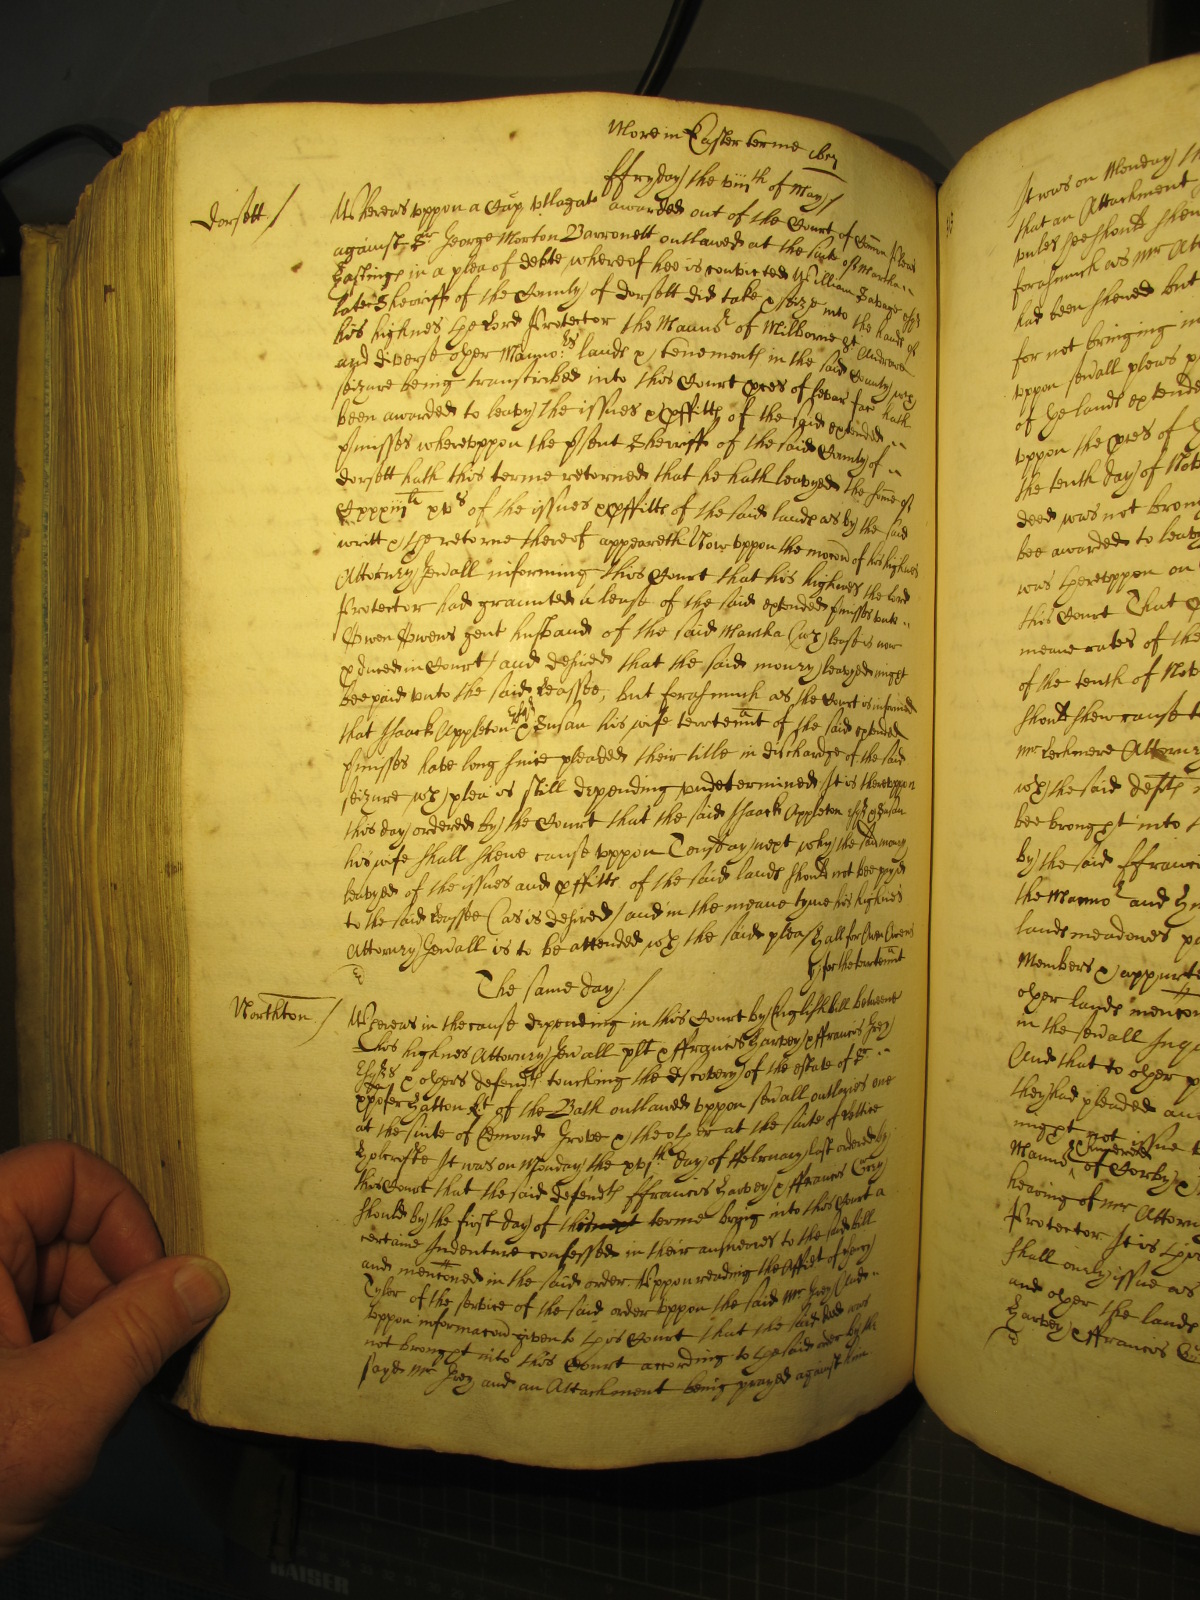 More in Easter terme 1657
ffryday the viiith of May /
Dorsett /
Whereas vppon a Cap vtlagat awarded out of the Court of Comon Pleas
against Sr George Morton Barronett outlawed at the suite of Martha
Hastings in a plea of debte whereof hee is convicted William Savage esqr
late Sheriffe of the County of Dorsett did take & seize into the hands of
his highnes the Lord Protector the Mannor of Milborne St Andrewe
and diverse other Mannors lands & tenements in the said County wch
seizure being transcribed into this Court pces of levar fac hath
been awarded to leavy the issues & pffitts of the said extended
pmisses wherevppon the psent Sheriffe of the said County of
Dorsett hath this terme returned that he hath leavyed the some of
xvs of the issues & pffitts of the said lands as by the said
writt & the retorne thereof appeareth Now vppon the mocon of his highnes
Attorney Gen'all informing this Court that his highnes the lord
Protector had graunted a lease of the said extended pmisses vnto
Owen Owens gent husband of the said Martha (wch) lease is now
pduced in Court / and desired that the said money leavyed might
bee paid vnto the said Leassee, but forasmuch as the Court is informed
that Isaack Appleton esqr & Susan his wife terrtennt of the said extended
pmisses have long since pleaded their title in dischardge of the said
seizure wch plea is still depending vndetermined It is therevppon
this day ordered by the Court that the said Isaack Appleton esqr & Susan
his wife shall shewe cause vppon Tuesday next why the said money
leavyed of the issues and pffitts of the said lands should not bee payd
to the said Leassee (as is desired) / and in the meane tyme his highnes
Attorney Gen'all is to be attended wth the said pleas Hall for Owen Owens
for the terrtennt
The same day /
Northton /
Whereas in the cause depending in this Court by English bill betweene
his highnes Attorney Gen'all plt & ffrancis Harvey & ffrancis Grey
Esqrs & others defendts touching the discovery of the estate of Sr
xpofer Hatton Kt of the Bath outlawed vppon sev'all outlaries one
at the suite of Edmond Grove & the other at the suite of Lettice
It was on Monday the xvith day of ffebruary last ordered by
this Court that the said defendts ffrancis Harvey & ffrancis Grey
should by the first day of this terme bring into this Court a
certaine Indenture confessed in their answeres to the said bill
and mencioned in the said order Vppon reading the Affidt of Henry
Tyler of the service of the said order vppon the said Mr Grey And
vppon informacon given to this Court that the said deed was
not brought into this Court according to the said order by the
said Mr Grey and an Attachment being prayed against him
It was on Monday
that an Attachment
vnles hee should shew
forasmuch as Mr At
had been shewed but
for not bringing in
vppon sev'all pleas p
of the lands extended
vppon the pces of
the tenth day of Nov
deed was not brou
bee awarded to leavy
was therevppon on
this Court That
meane rates of the
of the tenth of Nov
should shew cause
Mr Lechmere Attorney
wch the said defts
bee brought into
by the said ffrancis
the Mannor and
lands meadowes
Members & appurte
other lands mencon
in the sev'all Inqu
And that to other p
they had pleaded an
might not issue
Mannor of Corby &
hearing of Mr Attorn
Protector It is
shall onely issue as
and other the lands
Harvey & ffrancis